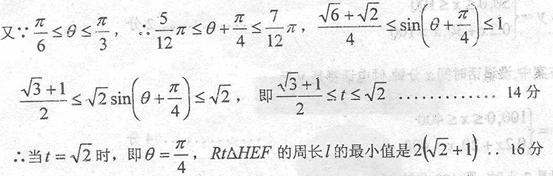 又∵ π/6 ≤ θ ≤ π/3, ∴ 5/12 π ≤ θ + π/4 ≤ 7/12 π, (√6+√2)/4 ≤ sin(θ + π/4) ≤ 1
(√3+1)/2 ≤ √2 sin(θ + π/4) ≤ √2, 即 (√3+1)/2 ≤ t ≤ √2 ………… 14 分
∴当 t = √2 时, 即 θ = π/4, Rt△HEF 的周长 l 的最小值是 2(√2+1) ‥ 16 分